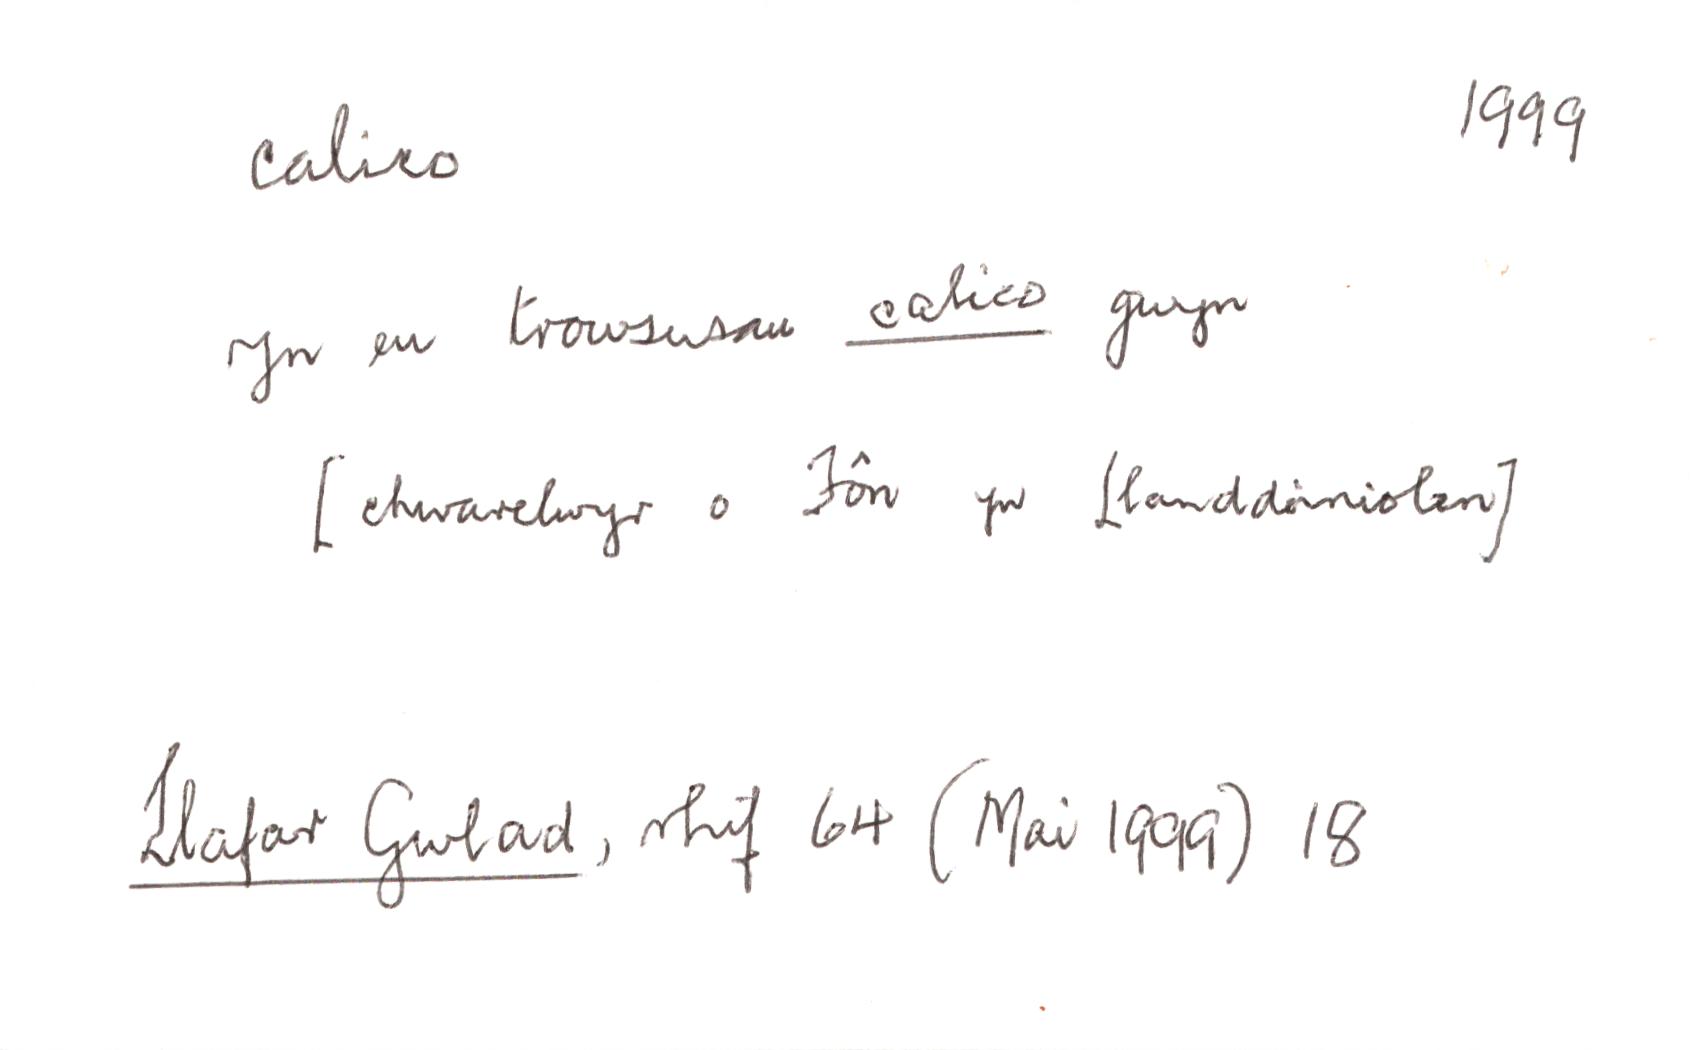 calico 1999
yn eu trowsusau calico gwyn
[chwarelwyr o Fôn yn Llanddeiniolen]
Llafar Gwlad, rhif 64 (Mai 1999) 18